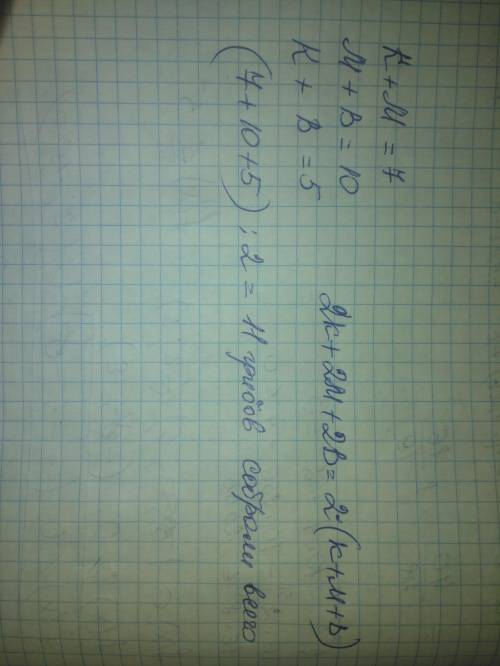 К + М = 7
М + В = 10
К + В = 5
2К + 2М + 2В = 2·(К+М+В)
(7 + 10 + 5) : 2 = 11 грибов собрали всего